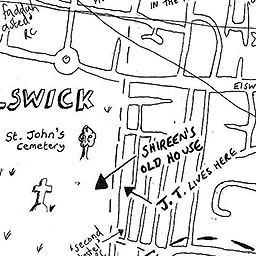 IN THE
RC
ELSW
SWICK
St. John's
cemetery
SHIREEN'S
OLD HOUSE
J.T. LIVES HERE
'second